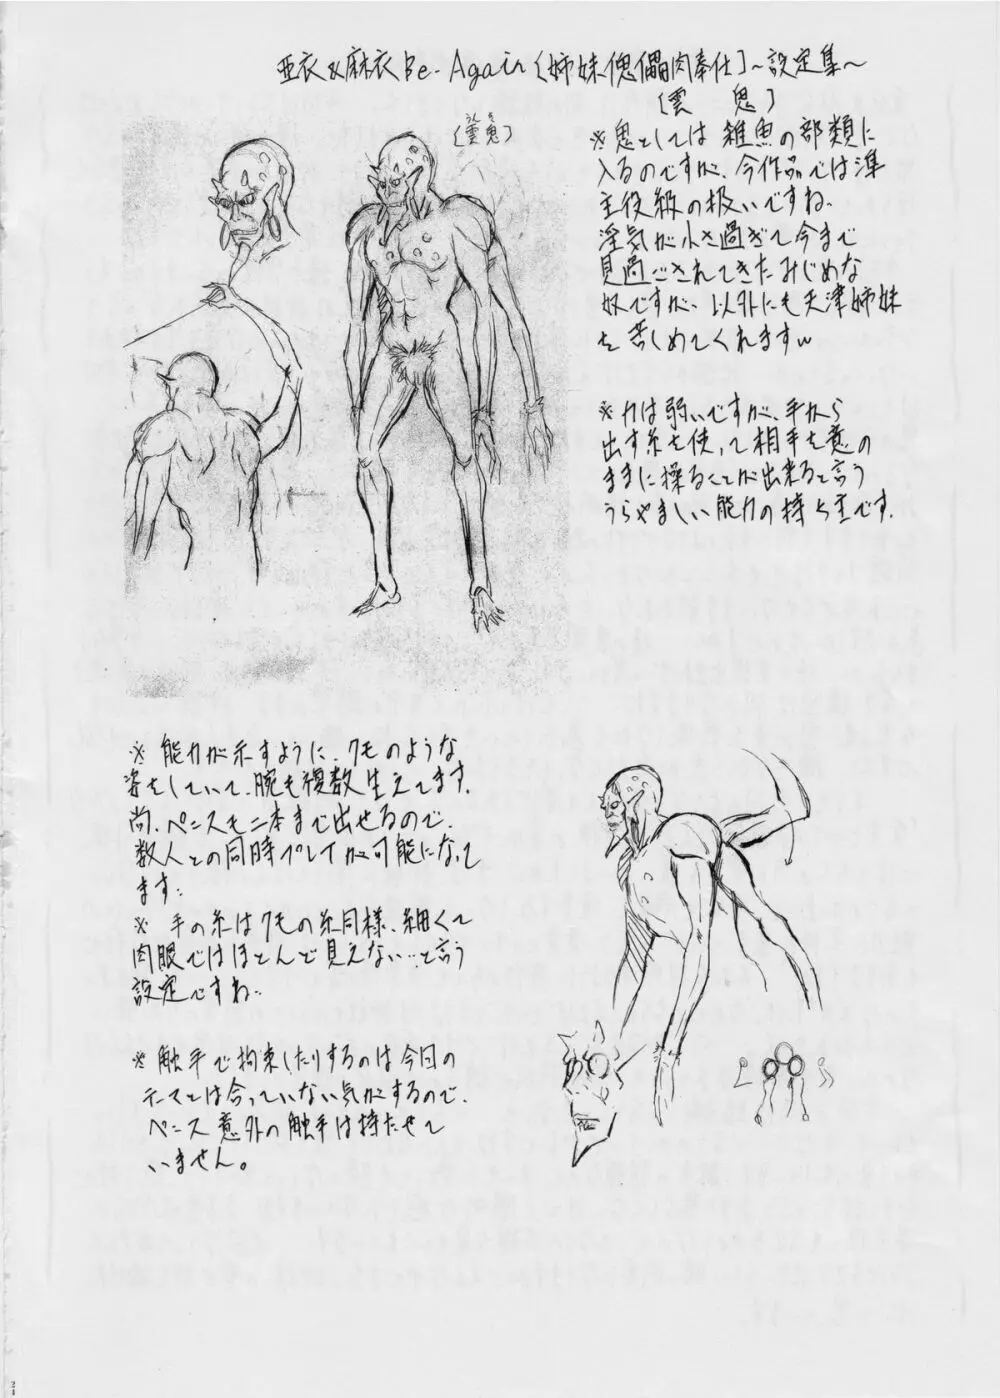 亜衣&麻衣Be-Again〔姉妹傀儡肉奉仕〕〜設定集〜
〔雲 鬼〕
〔雲鬼〕
※鬼としては雑魚の部類に
入るのですが、今作品では準
主役級の扱いですね。
淫気が小さ過ぎて今まで
見過ごされてきたみじめな
奴ですが、以外にも天津姉妹
を苦しめてくれますw
※力は弱いですが、手から
出す糸を使って相手を意の
ままに操ることが出来ると言う
うらやましい能力の持ち主です。
※能力が示すように、クモのような
姿をしていて、腕も複数生えてます。
尚、ペニスも二本まで出せるので、
数人との同時プレイが可能になって
ます。
※手の糸はクモの糸同様、細くて
肉眼ではほとんど見えない…と言う
設定ですね。
※触手で拘束したりするのは今回の
テーマとは合っていない気がするので、
ペニス意外の触手は持たせて
いません。
21